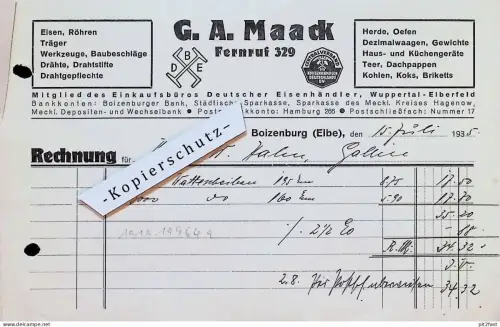 G. A. Maack
Fernruf 329
Eisen, Röhren
Träger
Werkzeuge, Baubeschläge
Drähte, Drahtstifte
Drahtgeflechte
E B D H
Herde, Oefen
Dezimalwaagen, Gewichte
Haus- und Küchengeräte
Teer, Dachpappen
Kohlen, Koks, Briketts
Mitglied des Einkaufsbüros Deutscher Eisenhändler, Wuppertal-Elberfeld
Bankkonten: Boizenburger Bank, Städtische Sparkasse, Sparkasse des Meckl. Kreises Hagenow,
Meckl. Depositen- und Wechselbank • Postscheckkonto: Hamburg 266 • Postschließfach: Nummer 17
Boizenburg (Elbe), 10. Juli 1935
Rechnung für Hahn, Gallin
-Kopierschutz-
195 cm 8.75 17.50
160 cm 5.90 17.70
35.20
./. 2½ % -.88
R.M. 34.32
2.8. per Postsch. überwiesen 34.32
pix2fleur
www.delcampe.net